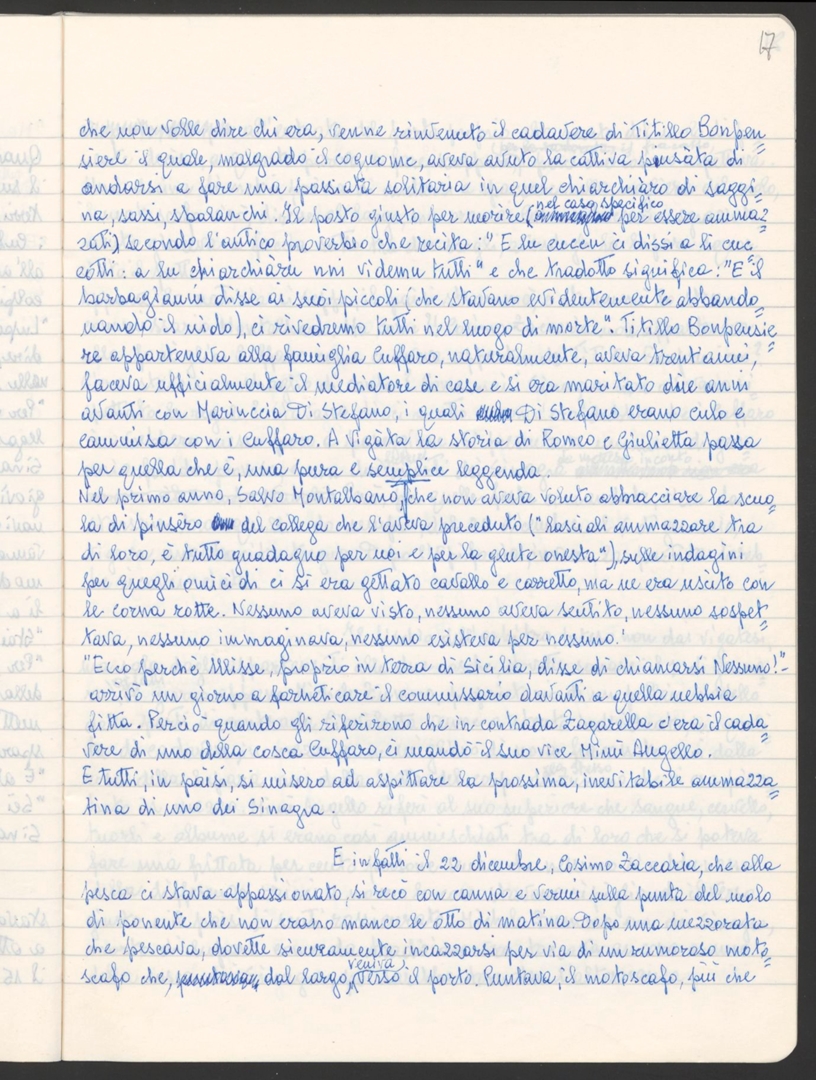 17
che non volle dire chi era, venne rinvenuto il cadavere di Titillo Bonpen
siere il quale, malgrado il cognome, aveva avuto la cattiva pinsata di
andarsi a fare una passiata solitaria in quel chiarchiàro di saggi=
nel caso specifico
na, sassi, sbalanchi. Il posto giusto per morire ( per essere ammaz=
zati) secondo l'antico proverbio che recita: "E lu cuccu ci dissi a li cuc=
cotti: a lu chiarchiàru nni videmu tutti" e che tradotto significa: "E il
barbagianni disse ai suoi piccoli (che stavano evidentemente abbando=
nando il nido), ci rivedremo tutti nel luogo di morte". Titillo Bonpensie=
re apparteneva alla famiglia Cuffaro, naturalmente, aveva trent'anni,
faceva ufficialmente il mediatore di case e si era maritato due anni
avanti con Mariuccia Di Stefano, i quali Di Stefano erano culo e
cammisa con i Cuffaro. A Vigàta la storia di Romeo e Giulietta passa
per quella che è, una pura e semplice leggenda.
Nel primo anno, Salvo Montalbano, che non aveva voluto abbracciare la scuo=
la di pinsèro del collega che l'aveva preceduto ("lasciali ammazzare tra
di loro, è tutto guadagno per noi e per la gente onesta"), sulle indagini
per quegli omicidi ci si era gettato cavallo e carretto, ma ne era uscito con
le corna rotte. Nessuno aveva visto, nessuno aveva sentito, nessuno sospet=
tava, nessuno immaginava, nessuno esisteva per nessuno.
"Ecco perchè Ulisse, proprio in terra di Sicilia, disse di chiamarsi Nessuno!"-
arrivò un giorno a farneticare il commissario davanti a quella nebbia
fitta. Perciò quando gli riferirono che in contrada Zagarella c'era il cada=
vere di uno della cosca Cuffaro, ci mandò il suo vice, Mimì Augello.
E tutti, in paìsi, si misero ad aspittare la prossima, inevitabile ammazza=
tina di uno dei Sinagra.
E infatti il 22 dicembre, Cosimo Zaccaria, che alla
pesca ci stava appassionato, si recò con canna e vermi sulla punta del molo
di ponente che non erano manco le otto di matina. Dopo una mezzorata
che pescava, dovette sicuramente incazzarsi per via di un rumoroso moto=
veniva,
scafo che, dal largo, verso il porto. Puntava, il motoscafo, più che